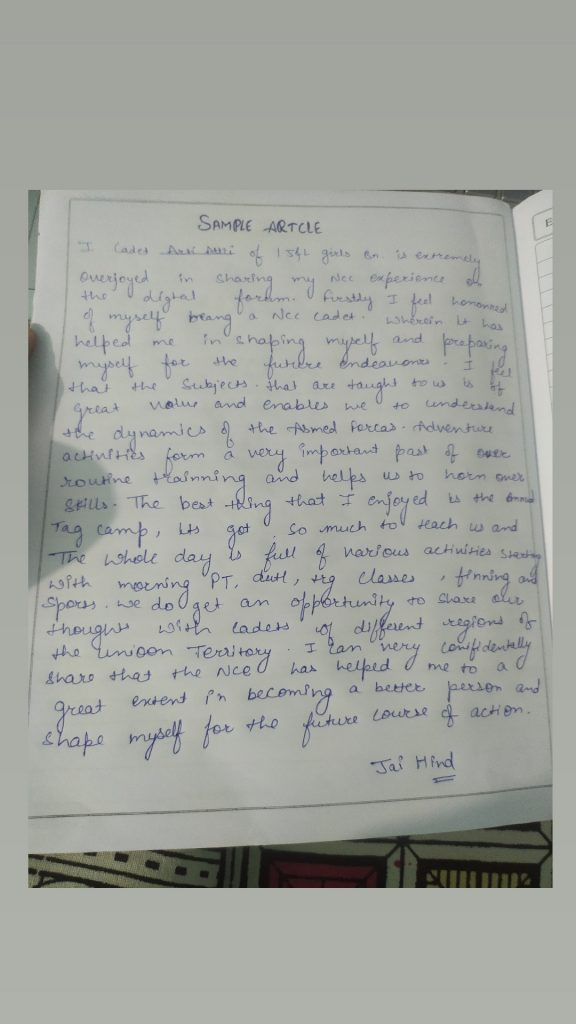 SAMPLE ARTCLE
I Cadet of 1 J&K girls Bn. is extremely
overjoyed in sharing my Ncc experience on
the digtal forum. Firstly I feel hononned
of myself being a Ncc cadet. Wherein it has
helped me in shaping myself and preparing
myself for the future endeavours. I feel
that the Subjects. that are taught to us is of
great value and enables we to understand
the dynamics of the Armed Forces. Adventure
activities form a very important part of over
routine trainning and helps us to horn over
Skills. The best thing that I enjoyed is the Annual
Tag camp, its got so much to teach us and
The whole day is full of various activities starting
with morning PT, trg classes, and
Sports. we do get an opportunity to share our
thoughts with cadets of different regions of
the unioon Territory. I can very confidentally
share that the Ncc has helped me to a
great extent in becoming a better person and
shape myself for the future course of action.
Jai Hind
E